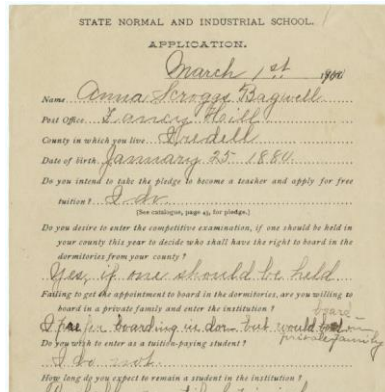 STATE NORMAL AND INDUSTRIAL SCHOOL.
APPLICATION.
March 1st 1900
Name Anna Scroggs Bagwell
Post Office Fancy Hill
County in which you live Iredell
Date of birth January 25 1880.
Do you intend to take the pledge to become a teacher and apply for free
tuition? I do.
[See catalogue, page 45, for pledge.]
Do you desire to enter the competitive examination, if one should be held in
your county this year to decide who shall have the right to board in the
dormitories from your county?
Yes, if one should be held.
Failing to get the appointment to board in the dormitories, are you willing to
board in a private family and enter the institution?
I prefer boarding in dorm. but would board in
private family
Do you wish to enter as a tuition-paying student?
I do not.
How long do you expect to remain a student in the institution?